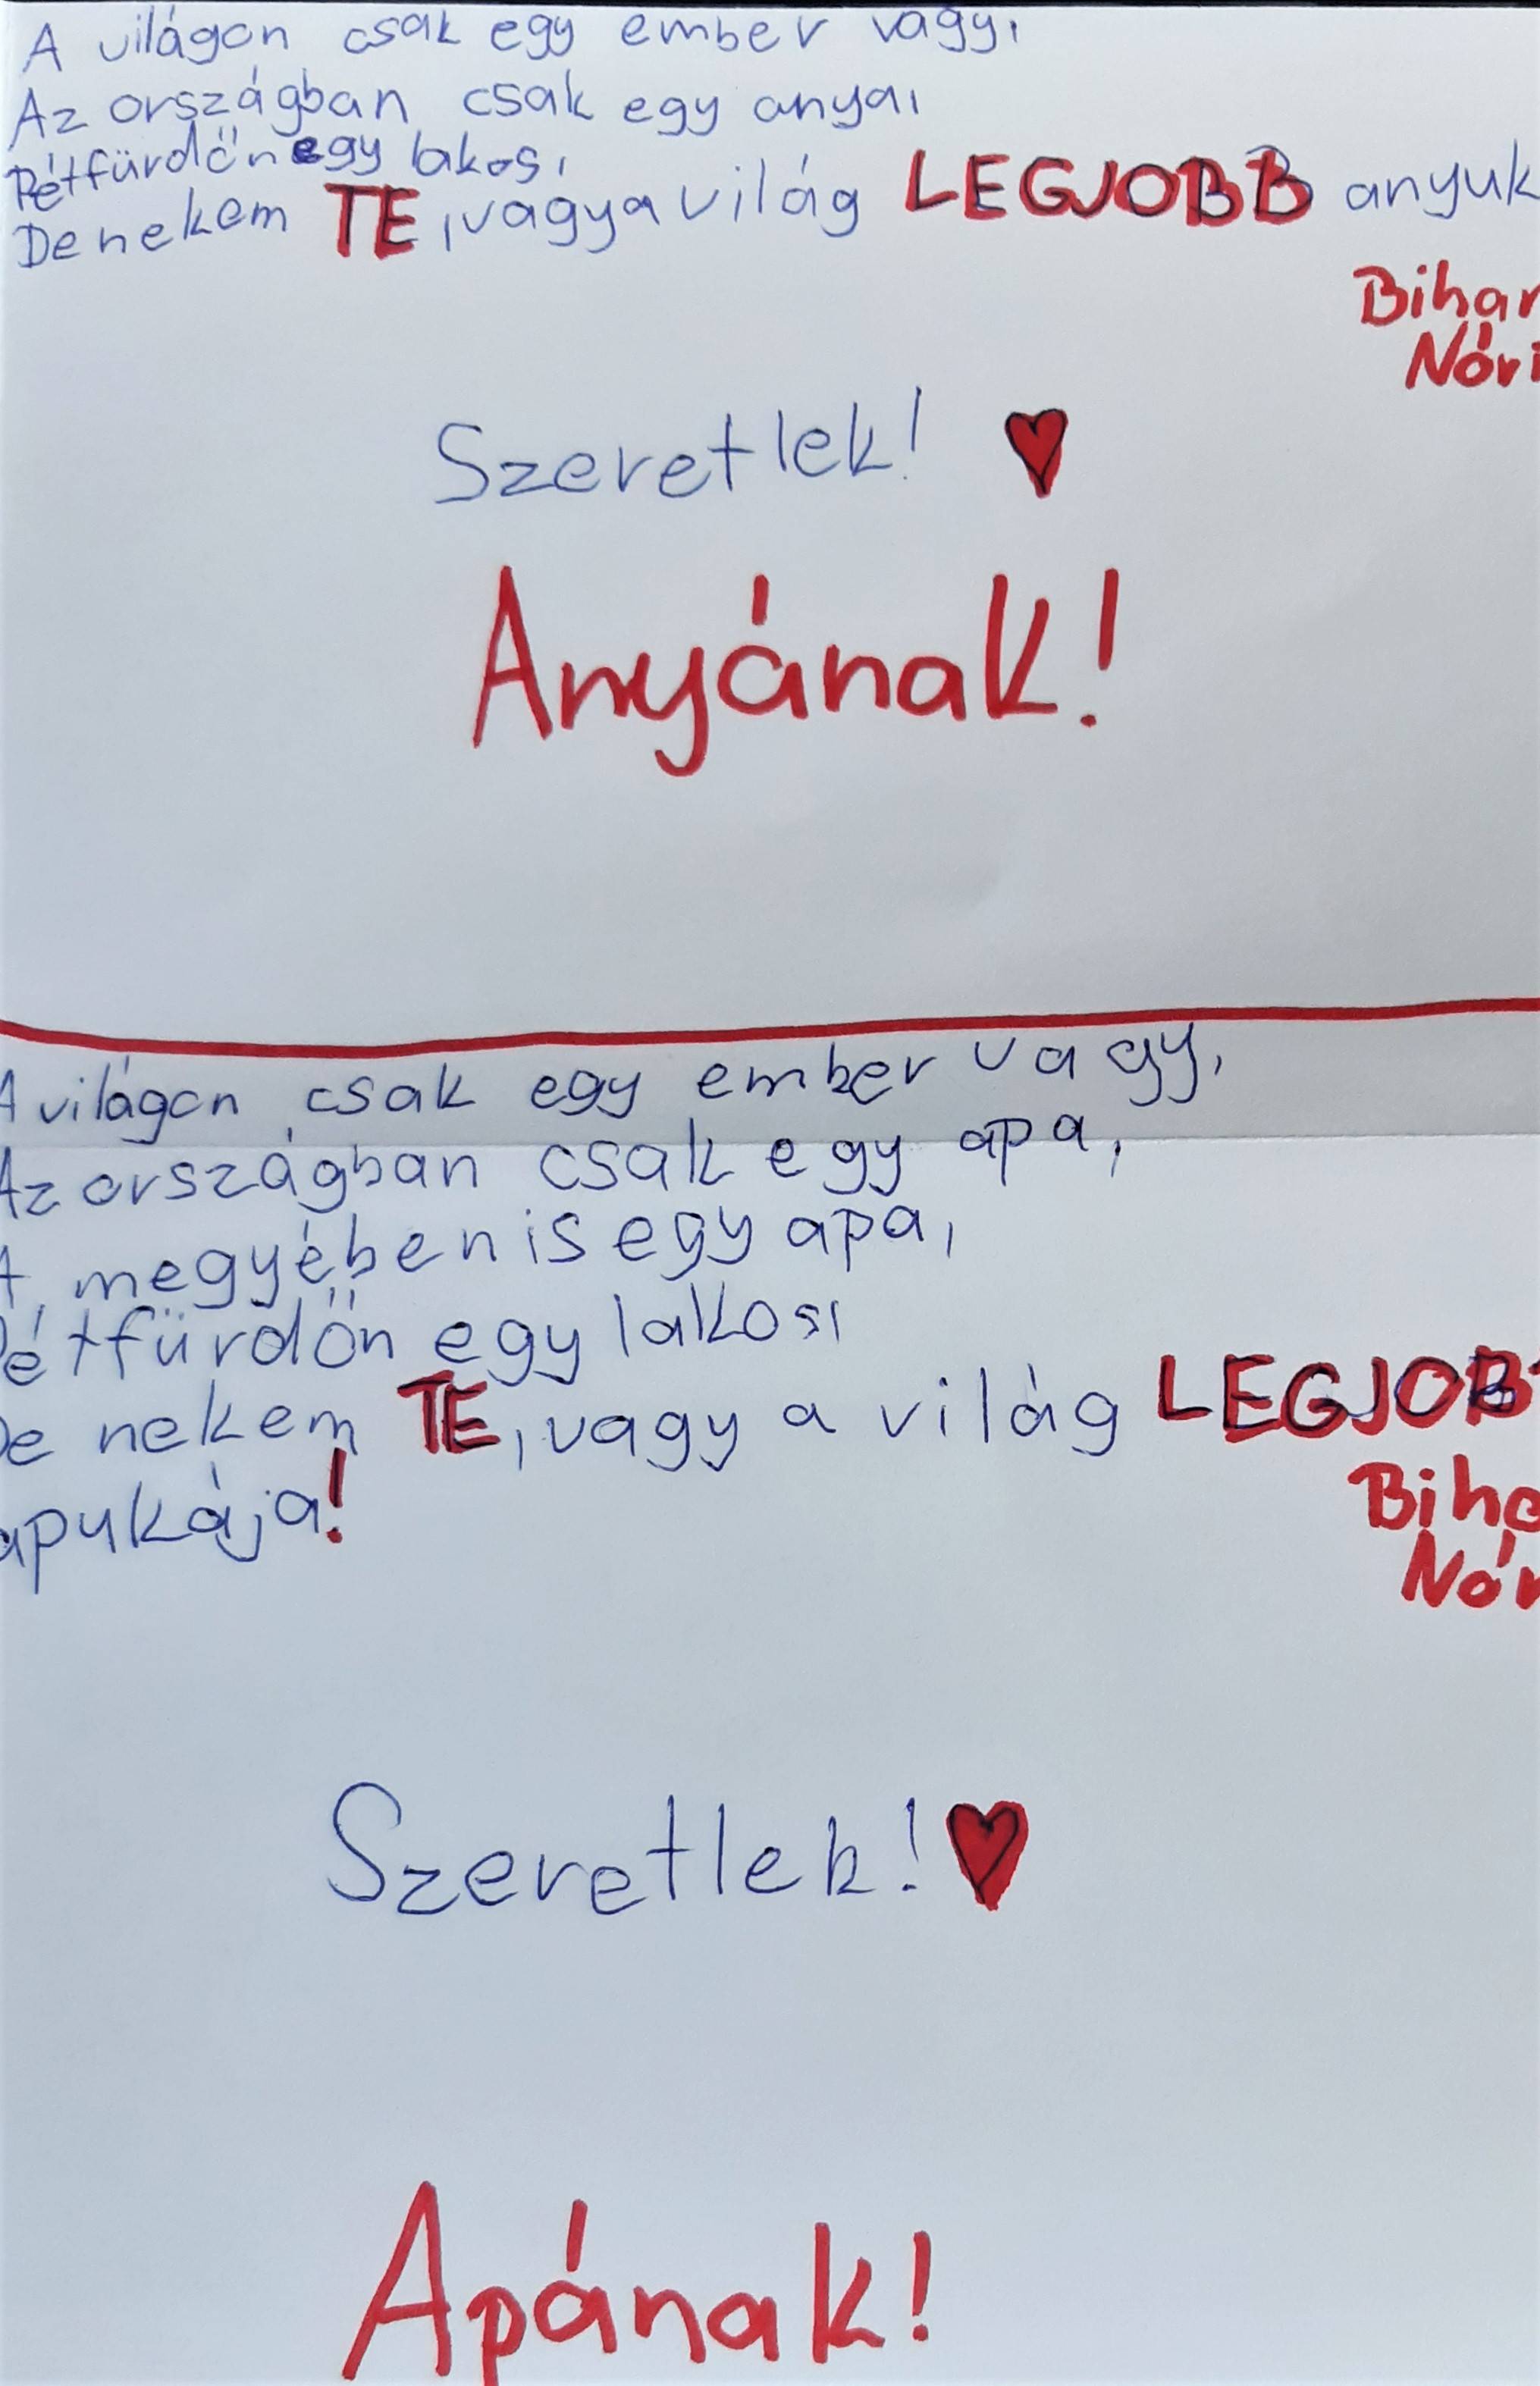 A világon csak egy ember vagy,
Az országban csak egy anya,
Pétfürdőn egy lakos,
De nekem TE, vagy a világ LEGJOBB anyuk
Bihar
Nóri
Szeretlek!
Anyának!
A világon csak egy ember vagy,
Az országban csak egy apa,
A megyében is egy apa,
Pétfürdőn egy lakos,
De nekem TE, vagy a világ LEGJOB
apukája!
Biha
Nór
Szeretlek!
Apának!